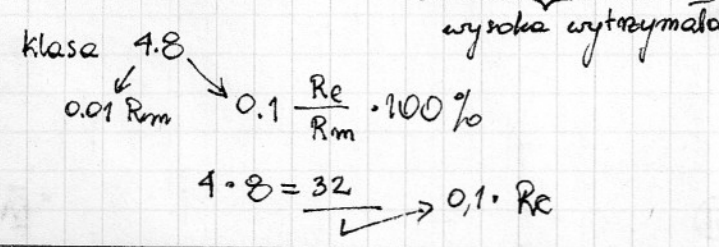 wysoka wytrzymało
klasa 4.8
0.01 Rm 0.1 Re/Rm · 100%
4 · 8 = 32 0,1 · Re